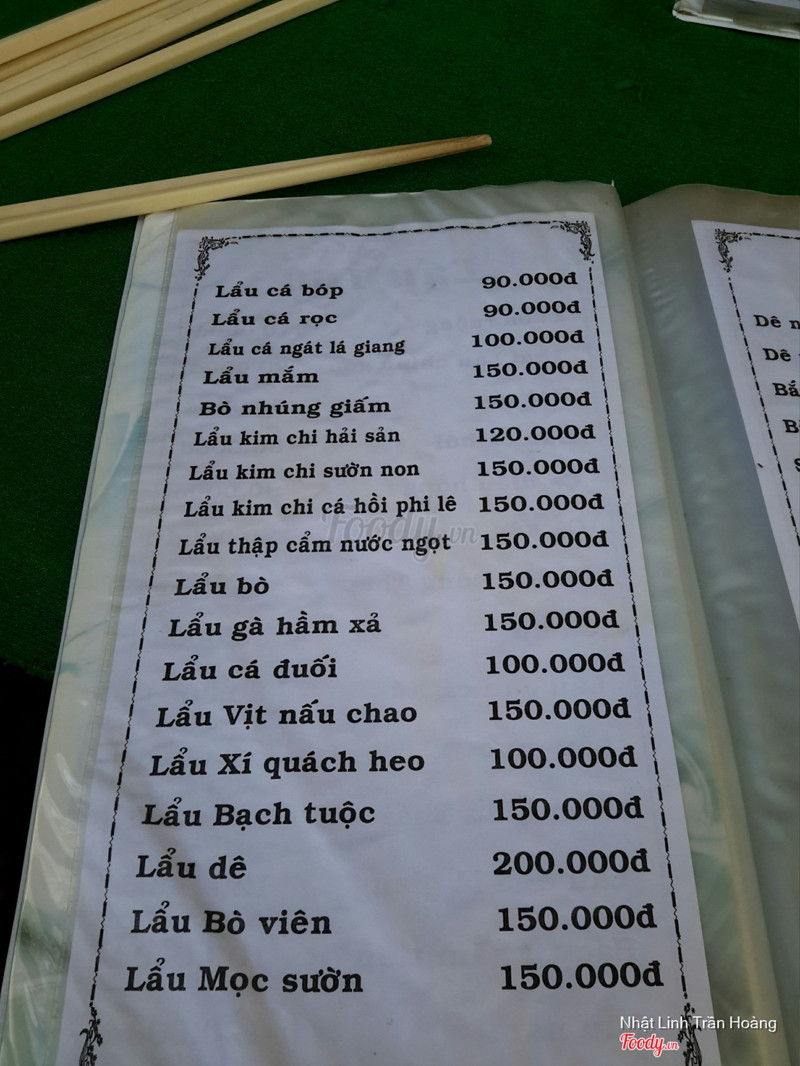 Lẩu cá bóp 90.000đ
Lẩu cá rọc 90.000đ
Lẩu cá ngát lá giang 100.000đ
Lẩu mắm 150.000đ
Bò nhúng giấm 150.000đ
Lẩu kim chi hải sản 120.000đ
Lẩu kim chi sườn non 150.000đ
Lẩu kim chi cá hồi phi lê 150.000đ
Lẩu thập cẩm nước ngọt 150.000đ
Lẩu bò 150.000đ
Lẩu gà hầm xả 150.000đ
Lẩu cá đuối 100.000đ
Lẩu Vịt nấu chao 150.000đ
Lẩu Xí quách heo 100.000đ
Lẩu Bạch tuộc 150.000đ
Lẩu dê 200.000đ
Lẩu Bò viên 150.000đ
Lẩu Mọc sườn 150.000đ
Dê
Dê
Foody.vn
Nhật Linh Trần Hoàng
Foody.vn